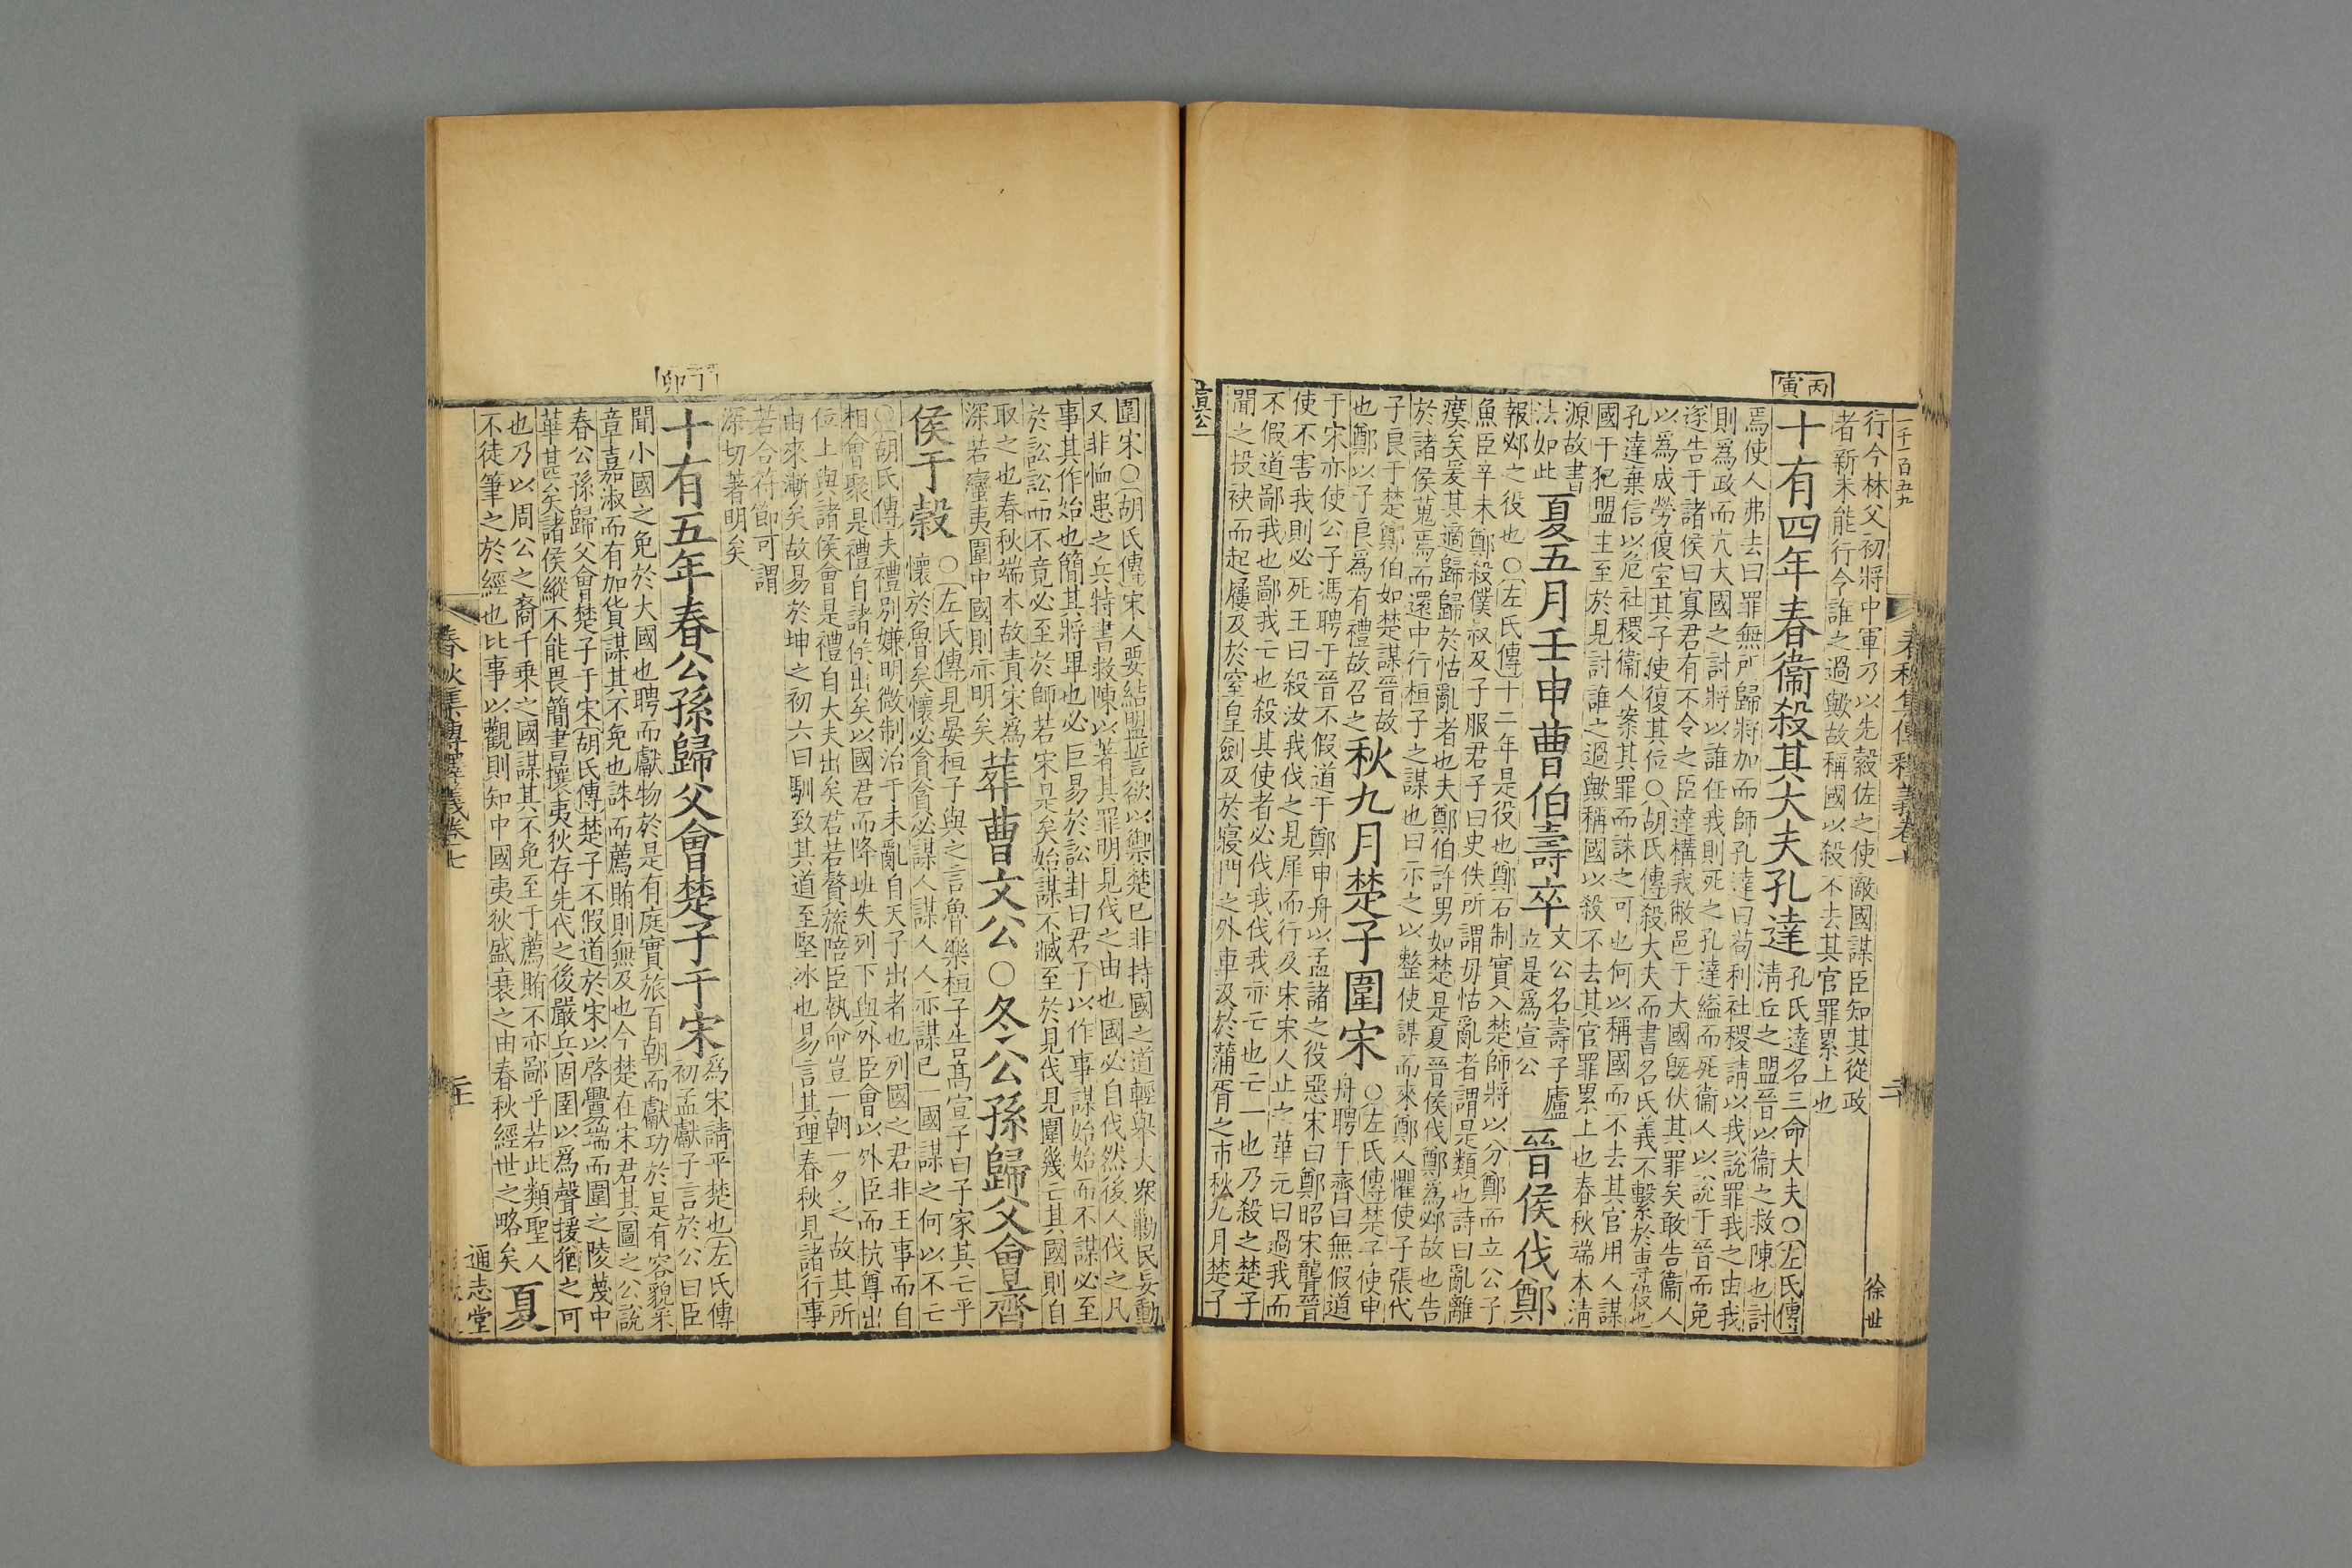 一千一百五九
春秋集傳釋義卷七
徐世
行今林父初將中軍乃以先縠佐之使敵國謀臣知其從政
者新未能行令誰之過歟故稱國以殺不去其官罪累上也
丙寅
十有四年春衞殺其大夫孔達
孔氏達名三命大夫○左氏傳
清丘之盟晉以衞之救陳也討
焉使人弗去曰罪無所歸將加而師孔達曰苟利社稷請以我說罪我之由我
則爲政而亢大國之討將以誰任我則死之孔達縊而死衞人以說于晉而免
遂告于諸侯曰寡君有不令之臣達構我敝邑于大國旣伏其罪矣敢告衞人
以爲成勞復室其子使復其位○胡氏傳殺大夫而書名氏義不繫於專殺也
孔達棄信以危社稷衞人案其罪而誅之可也何以稱國而不去其官用人謀
國干犯盟主至於見討誰之過歟稱國以殺不去其官罪累上也春秋端本淸
源故書
法如此
夏五月壬申曹伯壽卒
文公名壽子廬
立是爲宣公
晉侯伐鄭
報邲之役也○左氏傳十二年是役也鄭石制實入楚師將以分鄭而立公子
魚臣辛未鄭殺僕叔及子服君子曰史佚所謂毋怙亂者謂是類也詩曰亂離
瘼矣爰其適歸歸於怙亂者也夫鄭伯許男如楚是夏晉侯伐鄭爲邲故也告
於諸侯蒐焉而還中行桓子之謀也曰示之以整使謀而來鄭人懼使子張代
子良于楚鄭伯如楚謀晉故
也鄭以子良爲有禮故召之
秋九月楚子圍宋
○左氏傳楚子使申
舟聘于齊曰無假道
于宋亦使公子馮聘于晉不假道于鄭申舟以孟諸之役惡宋曰鄭昭宋聾晉
使不害我則必死王曰殺汝我伐之見犀而行及宋宋人止之華元曰過我而
不假道鄙我也鄙我亡也殺其使者必伐我伐我亦亡也亡一也乃殺之楚子
聞之投袂而起屨及於窒皇劍及於寢門之外車及於蒲胥之市秋九月楚子
宣公
圍宋○胡氏傳宋人要結盟誓欲以禦楚已非持國之道輕與大衆勦民妄動
又非恤患之兵特書救陳以著其罪明見伐之由也國必自伐然後人伐之凡
事其作始也簡其將畢也必巨易於訟卦曰君子以作事謀始始而不謀必至
於訟訟而不竟必至於師若宋是矣始謀不臧至於見伐見圍幾亡其國則自
取之也春秋端本故責宋爲
深若蠻夷圍中國則亦明矣
葬曹文公○冬公孫歸父會齊
侯于穀
○左氏傳見晏桓子與之言魯樂桓子告高宣子曰子家其亡乎
懷於魯矣懷必貪貪必謀人謀人人亦謀已一國謀之何以不亡
○胡氏傳夫禮別嫌明微制治于未亂自天子出者也列國之君非王事而自
相會聚是禮自諸侯出矣以國君而降班失列下與外臣會以外臣而抗尊出
位上與諸侯會是禮自大夫出矣君若贅旒陪臣執命豈一朝一夕之故其所
由來漸矣故易於坤之初六曰馴致其道至堅冰也易言其理春秋見諸行事
若合符節可謂
深切著明矣
丁卯
十有五年春公孫歸父會楚子于宋
爲宋請平楚也左氏傳
初孟獻子言於公曰臣
聞小國之免於大國也聘而獻物於是有庭實旅百朝而獻功於是有容貌采
章嘉淑而有加貨謀其不免也誅而薦賄則無及也今楚在宋君其圖之公說
春公孫歸父會楚子于宋胡氏傳楚子不假道於宋以啓釁端而圍之陵蔑中
華甚矣諸侯縱不能畏簡書攘夷狄存先代之後嚴兵固圉以爲聲援猶之可
也乃以周公之裔千乘之國謀其不免至于薦賄不亦鄙乎若此類聖人
不徒筆之於經也比事以觀則知中國夷狄盛衰之由春秋經世之略矣
夏
春秋集傳釋義卷七
通志堂